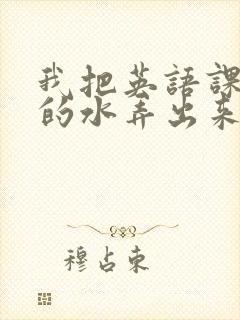 我把英語課
的水弄出來
穆占東